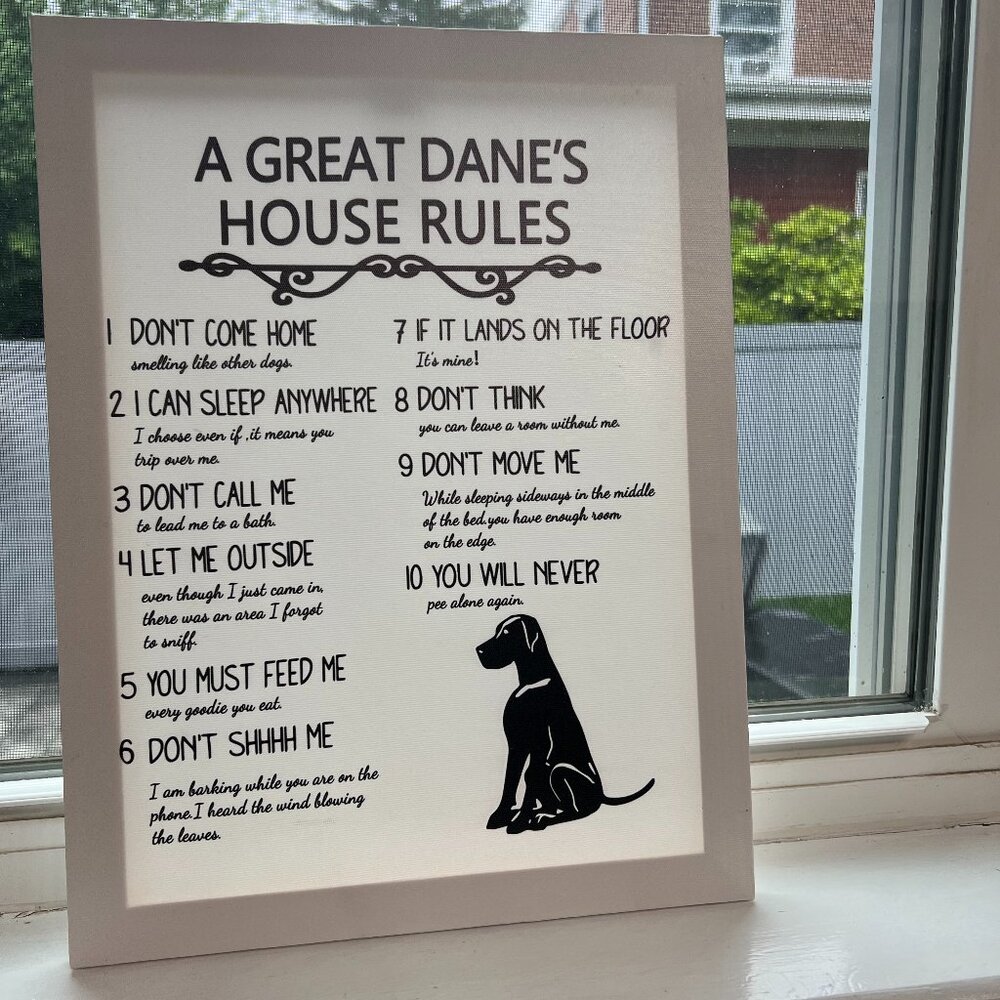 A GREAT DANE'S
HOUSE RULES
1 DON'T COME HOME
smelling like other dogs.
2 I CAN SLEEP ANYWHERE
I choose even if ,it means you
trip over me.
3 DON'T CALL ME
to lead me to a bath.
4 LET ME OUTSIDE
even though I just came in,
there was an area I forgot
to sniff.
5 YOU MUST FEED ME
every goodie you eat.
6 DON'T SHHHH ME
I am barking while you are on the
phone.I heard the wind blowing
the leaves.
7 IF IT LANDS ON THE FLOOR
It's mine!
8 DON'T THINK
you can leave a room without me.
9 DON'T MOVE ME
While sleeping sideways in the middle
of the bed.you have enough room
on the edge.
10 YOU WILL NEVER
pee alone again.